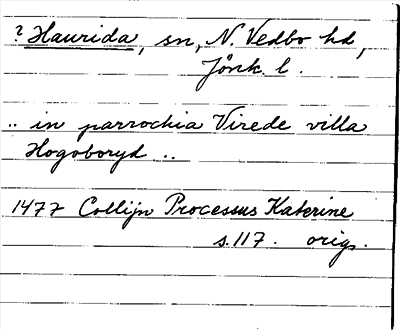 ? Haurida, sn, N. Vedbo hd,
Jönk. l.
.. in parrochia Virede villa
Hogoboryd ..
1477 Collijn Processus Katerine
s. 117. orig.